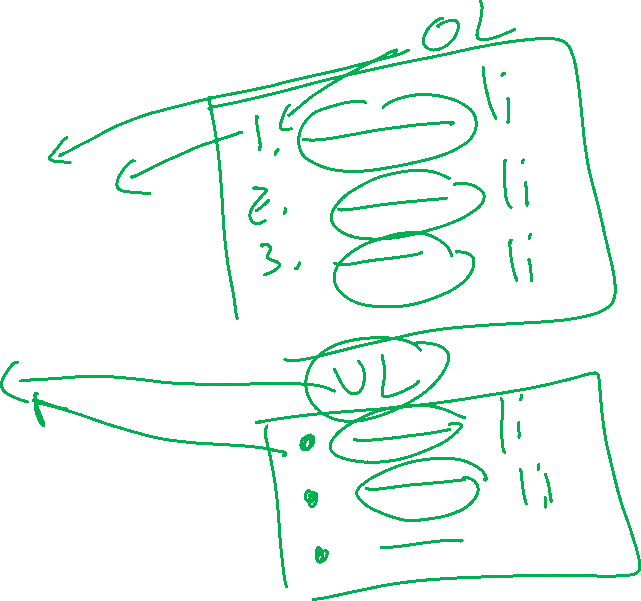 OL
1. li
2. li
3. li
UL
li
li